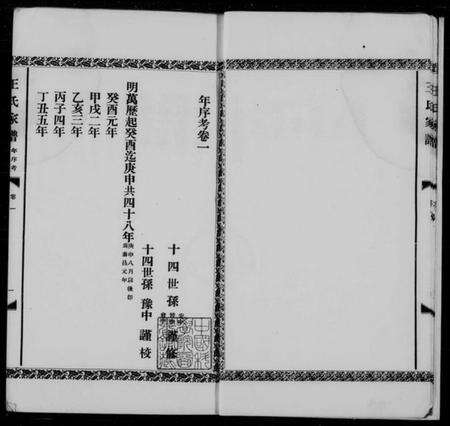 年序考卷一
十四世孫 謹修
十四世孫 豫中 謹校
明萬歷起癸酉迄庚申共四十八年庚申八月以後即為泰昌元年
癸酉元年
甲戌二年
乙亥三年
丙子四年
丁丑五年
王氏家譜 年序考 卷一 一
王氏家譜